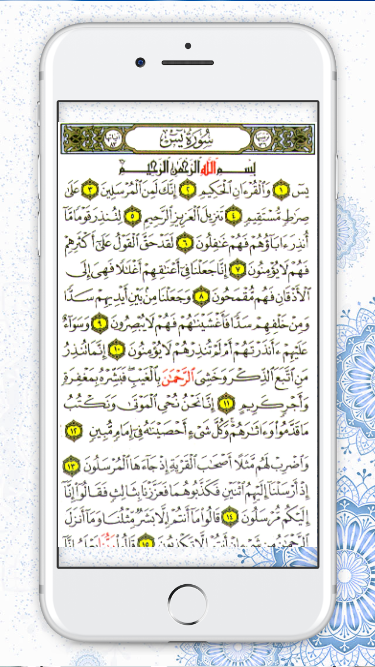 سُورَةُ يسٓ
بِسْمِ اللَّهِ الرَّحْمَٰنِ الرَّحِيمِ
يسٓ ١ وَالْقُرْءَانِ الْحَكِيمِ ٢ إِنَّكَ لَمِنَ الْمُرْسَلِينَ ٣ عَلَىٰ
صِرَٰطٍ مُّسْتَقِيمٍ ٤ تَنزِيلَ الْعَزِيزِ الرَّحِيمِ ٥ لِتُنذِرَ قَوْمًا مَّا
أُنذِرَ ءَابَاؤُهُمْ فَهُمْ غَٰفِلُونَ ٦ لَقَدْ حَقَّ الْقَوْلُ عَلَىٰ أَكْثَرِهِمْ
فَهُمْ لَا يُؤْمِنُونَ ٧ إِنَّا جَعَلْنَا فِي أَعْنَٰقِهِمْ أَغْلَٰلًا فَهِيَ إِلَى
الْأَذْقَانِ فَهُم مُّقْمَحُونَ ٨ وَجَعَلْنَا مِن بَيْنِ أَيْدِيهِمْ سَدًّا
وَمِنْ خَلْفِهِمْ سَدًّا فَأَغْشَيْنَٰهُمْ فَهُمْ لَا يُبْصِرُونَ ٩ وَسَوَاءٌ
عَلَيْهِمْ ءَأَنذَرْتَهُمْ أَمْ لَمْ تُنذِرْهُمْ لَا يُؤْمِنُونَ ١٠ إِنَّمَا تُنذِرُ
مَنِ اتَّبَعَ الذِّكْرَ وَخَشِيَ الرَّحْمَٰنَ بِالْغَيْبِ فَبَشِّرْهُ بِمَغْفِرَةٍ
وَأَجْرٍ كَرِيمٍ ١١ إِنَّا نَحْنُ نُحْيِ الْمَوْتَىٰ وَنَكْتُبُ
مَا قَدَّمُوا وَءَاثَٰرَهُمْ وَكُلَّ شَيْءٍ أَحْصَيْنَٰهُ فِي إِمَامٍ مُّبِينٍ ١٢
وَاضْرِبْ لَهُم مَّثَلًا أَصْحَٰبَ الْقَرْيَةِ إِذْ جَاءَهَا الْمُرْسَلُونَ ١٣
إِذْ أَرْسَلْنَا إِلَيْهِمُ اثْنَيْنِ فَكَذَّبُوهُمَا فَعَزَّزْنَا بِثَالِثٍ فَقَالُوا إِنَّا
إِلَيْكُم مُّرْسَلُونَ ١٤ قَالُوا مَا أَنتُمْ إِلَّا بَشَرٌ مِّثْلُنَا وَمَا أَنزَلَ
الرَّحْمَٰنُ مِن شَيْءٍ إِنْ أَنتُمْ إِلَّا تَكْذِبُونَ ١٥ قَالُوا رَبُّنَا يَعْلَمُ إِنَّا